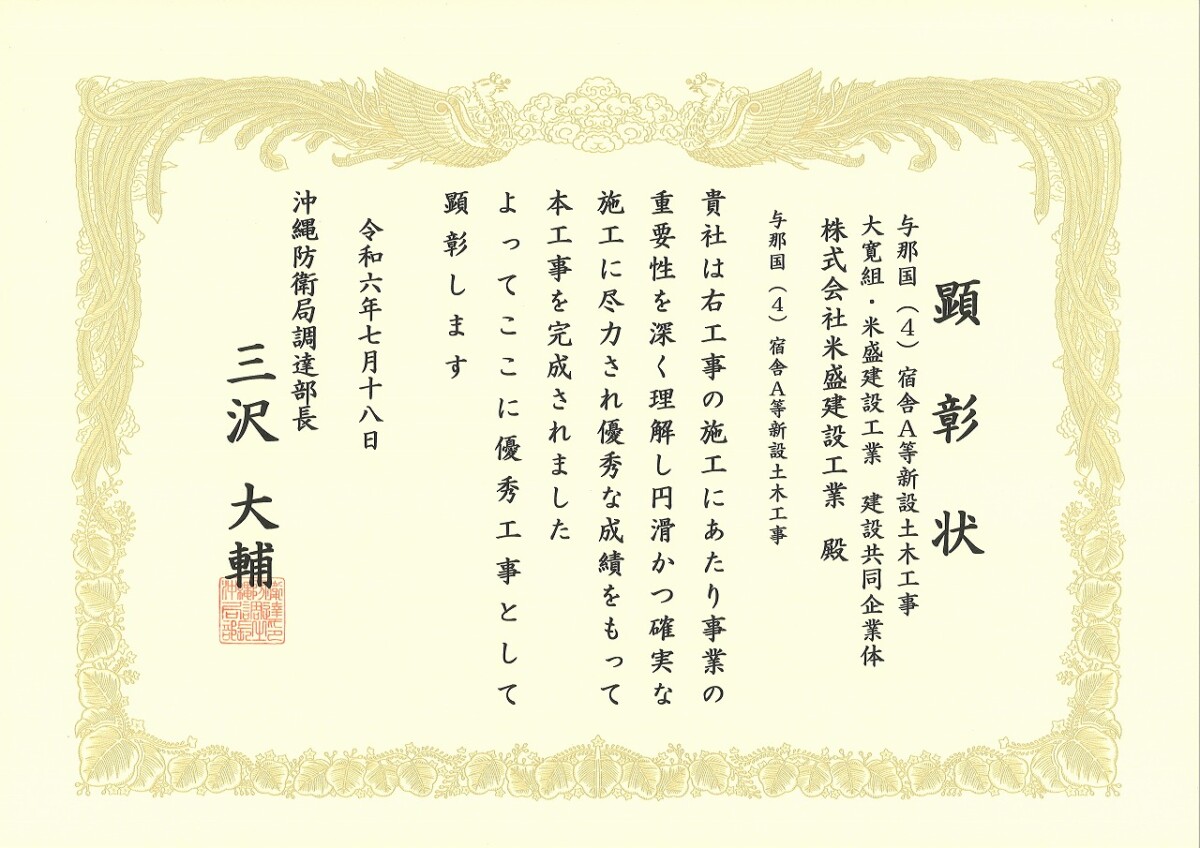 顕彰状
与那国（4）宿舎A等新設土木工事
大寛組・米盛建設工業 建設共同企業体
株式会社米盛建設工業 殿
与那国（4）宿舎A等新設土木工事
貴社は右工事の施工にあたり事業の
重要性を深く理解し円滑かつ確実な
施工に尽力され優秀な成績をもって
本工事を完成されました
よってここに優秀工事として
顕彰します
令和六年七月十八日
沖縄防衛局調達部長
三沢 大輔